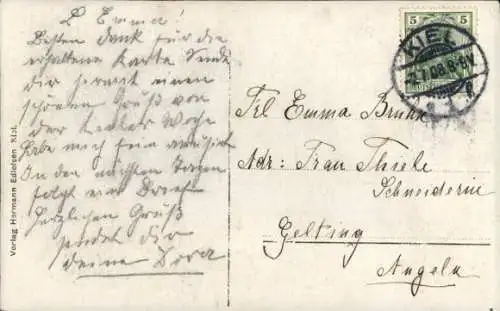 L Emma!
Besten Dank für die
erhaltene Karte Sende
dir hiermit einen
schönen Gruß von
der Kieler Woche
Habe mich fein amüsirt
In den nächsten Tagen
folgt ein Brief
Herzlichen Gruß
sendet dir
deine Dora
Verlag Hermann Edlefsen Kiel
5 5
KIEL
7.08.8-9V
Frl Emma Bruhn
Adr: Frau Thiele
Schneiderin
Gelting
Angeln